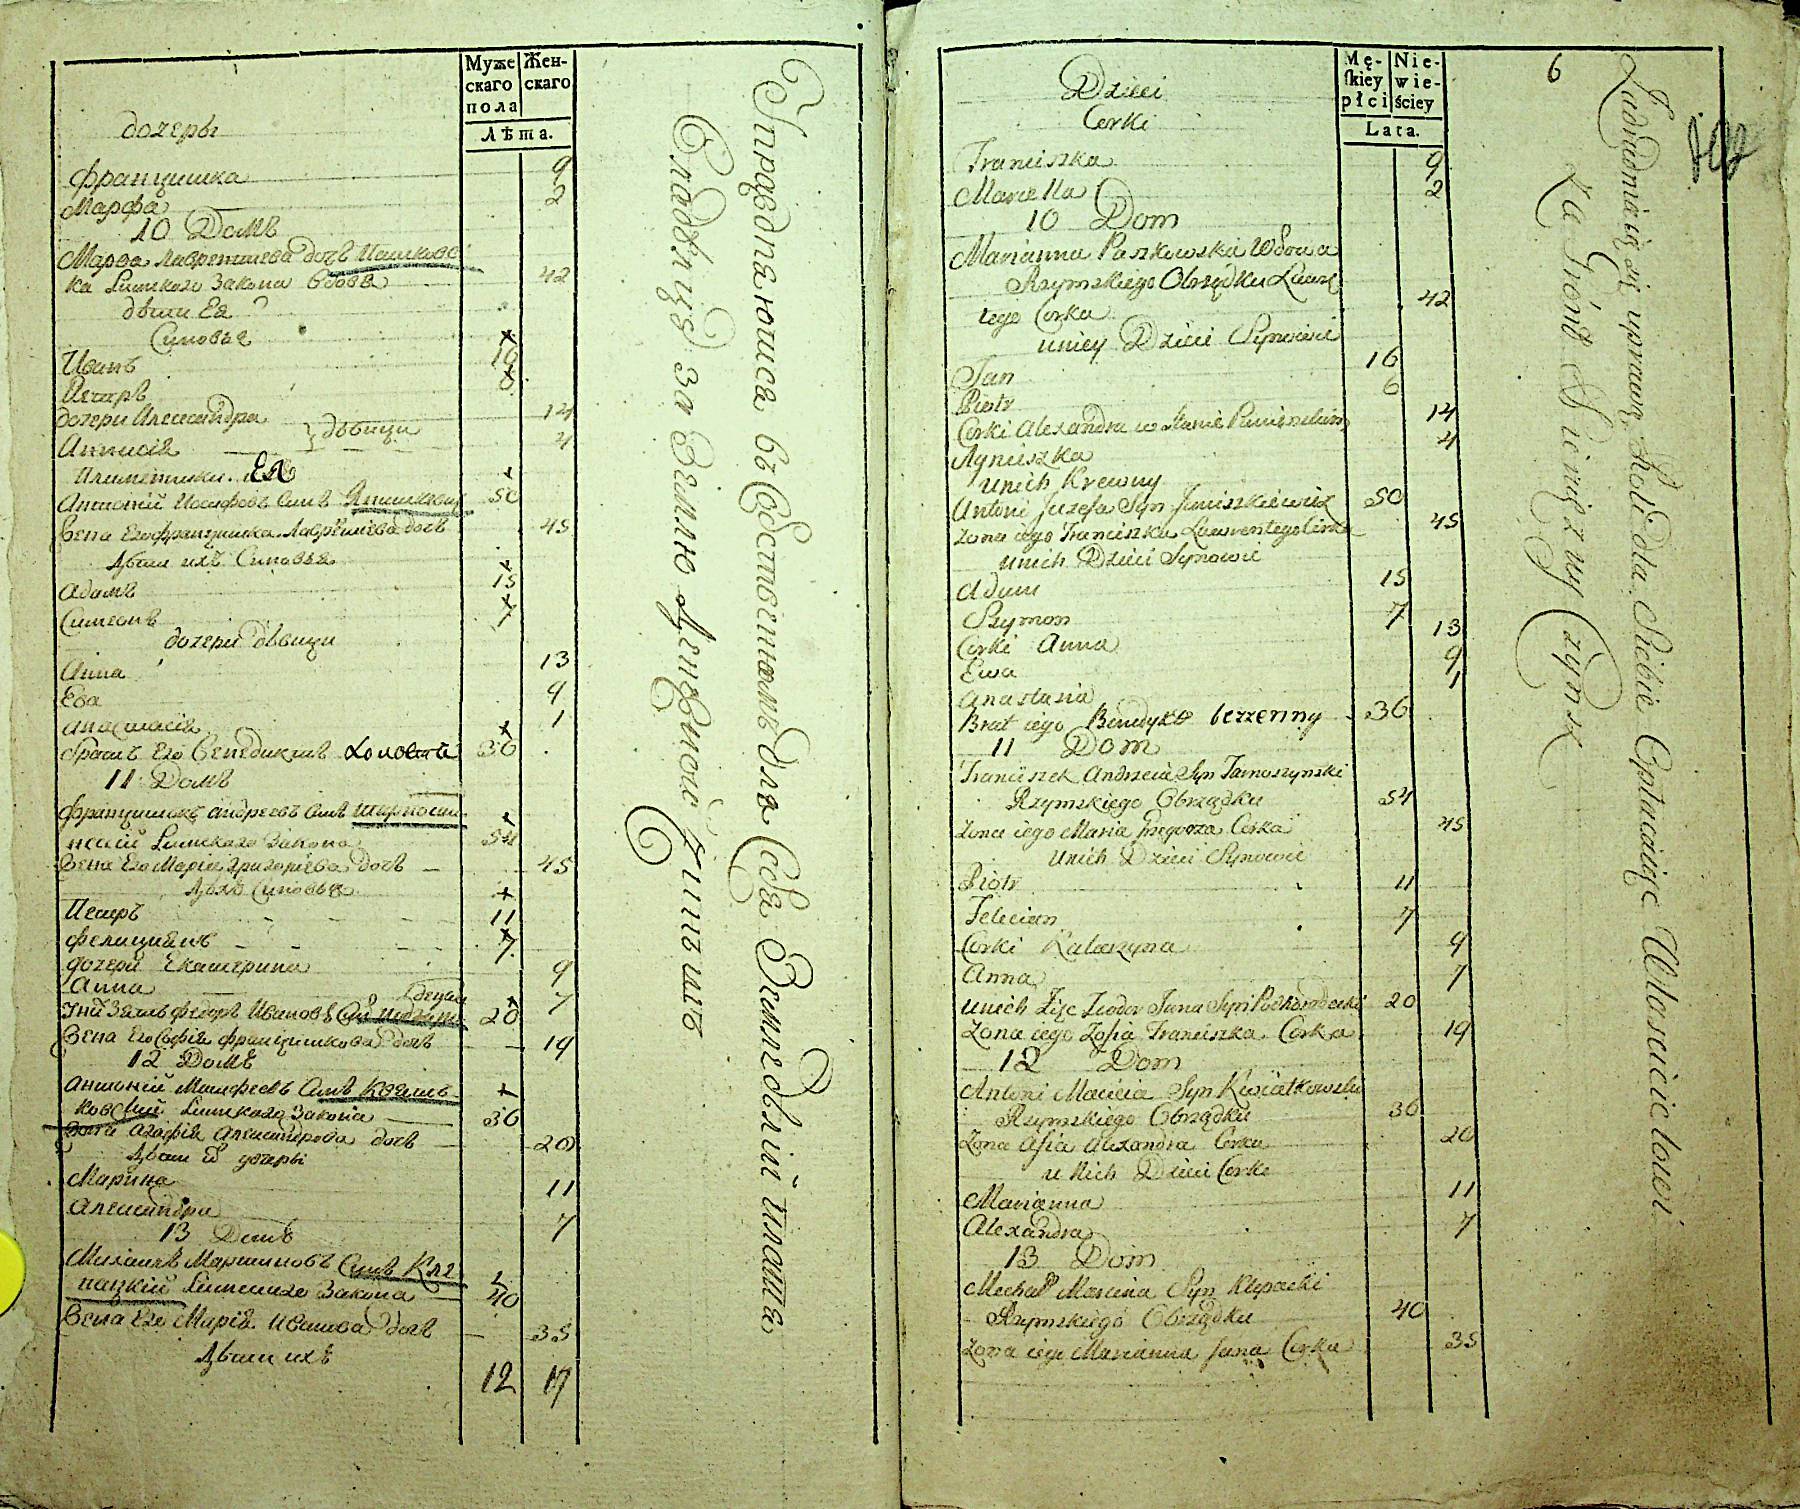 Муже
скаго
пола
Жен-
скаго
Лѣта.
дочеры
Францишка 9
Марфа 2
10 Домъ
Марѳа Лаврентиева дочъ Пашковс
ка Римскаго Закона вдова 42
дѣти Ея
Синовья
Иванъ 16
Петръ 6
дочери Александра 14
дѣвици
Агнисія 4
Племенники Ея
Антоній Иосифовъ Сынъ 50
Жена Его Францишка Лаврентиева дочъ 45
Дѣти ихъ Синовья
Адамъ 15
Симеонъ 7
дочери дѣвици
Анна 13
Ева 9
Анастасія 1
братъ Его Бенедиктъ холостъ 36
11 Домъ
Францишекъ Андреевъ Сынъ
Римскаго Закона 54
Жена Его Марія Григориева дочъ 45
Синовья
Петръ 11
Фелиціанъ 7
дочери Екатерина 9
Анна 7
Зять Федоръ Ивановъ 20
Жена Его Софія Францишкова дочъ 19
12 Домъ
Антоній Матфеевъ Сынъ Квятъ
ковскій Римскаго Закона 36
Жена Агафія Александрова дочъ 20
Дѣти дочеры
Марина 11
Александра 7
13 Домъ
Михаилъ Мартиновъ Сынъ Кле
пацкій Римскаго Закона 40
Жена Его Марія Иванова дочъ 35
Дѣти ихъ
12 17
Управдняютися въ Собственномъ для Себя Земледѣлій платя
Владѣлцу за Землю Денежной Чиншъ
Mę-
skiey
płci
Nie-
wie-
ściey
Lata.
6
Dzieci
Corki
Franciszka 9
Maryella 2
10 Dom
Marianna Paszkowska Wdowa
Rzymskiego Obrządku Lawręn
tego Corka 42
u niey Dzieci Synowie
Jan 16
Piotr 6
Corki Alexandra w Stanie Panienskim 14
Agnieszka 4
u nich Krewny
Antoni Juzefa Syn 50
Zona iego Franciszka Lawrentego Corka 45
u nich Dzieci Synowie
Adam 15
Szymon 7
Corki Anna 13
Ewa 9
Anastazia 1
Brat iego Benedykt bezzenny 36
11 Dom
Franciszek Andrzeia Syn
Rzymskiego Obrządku 54
Zona iego Maria Grzegorza Corka 45
u nich Dzieci Synowie
Piotr 11
Felician 7
Corki Katarzyna 9
Anna 7
u nich Zięc Teodor Jana Syn 20
Zona iego Zofia Franciszka Corka 19
12 Dom
Antoni Macieia Syn Kwiatkowski
Rzymskiego Obrządku 36
Zona Alexandra Corka 20
u Nich Dzieci Corki
Marianna 11
Alexandra 7
13 Dom
Mechał Marcina Syn Klepacki
Rzymskiego Obrządku 40
Zona iego Marianna Jana Corka 35
się uprawą Roli dla Siebie Opłacaiąc Właścicielowi
Za Grónt Pieniężny Czynsz